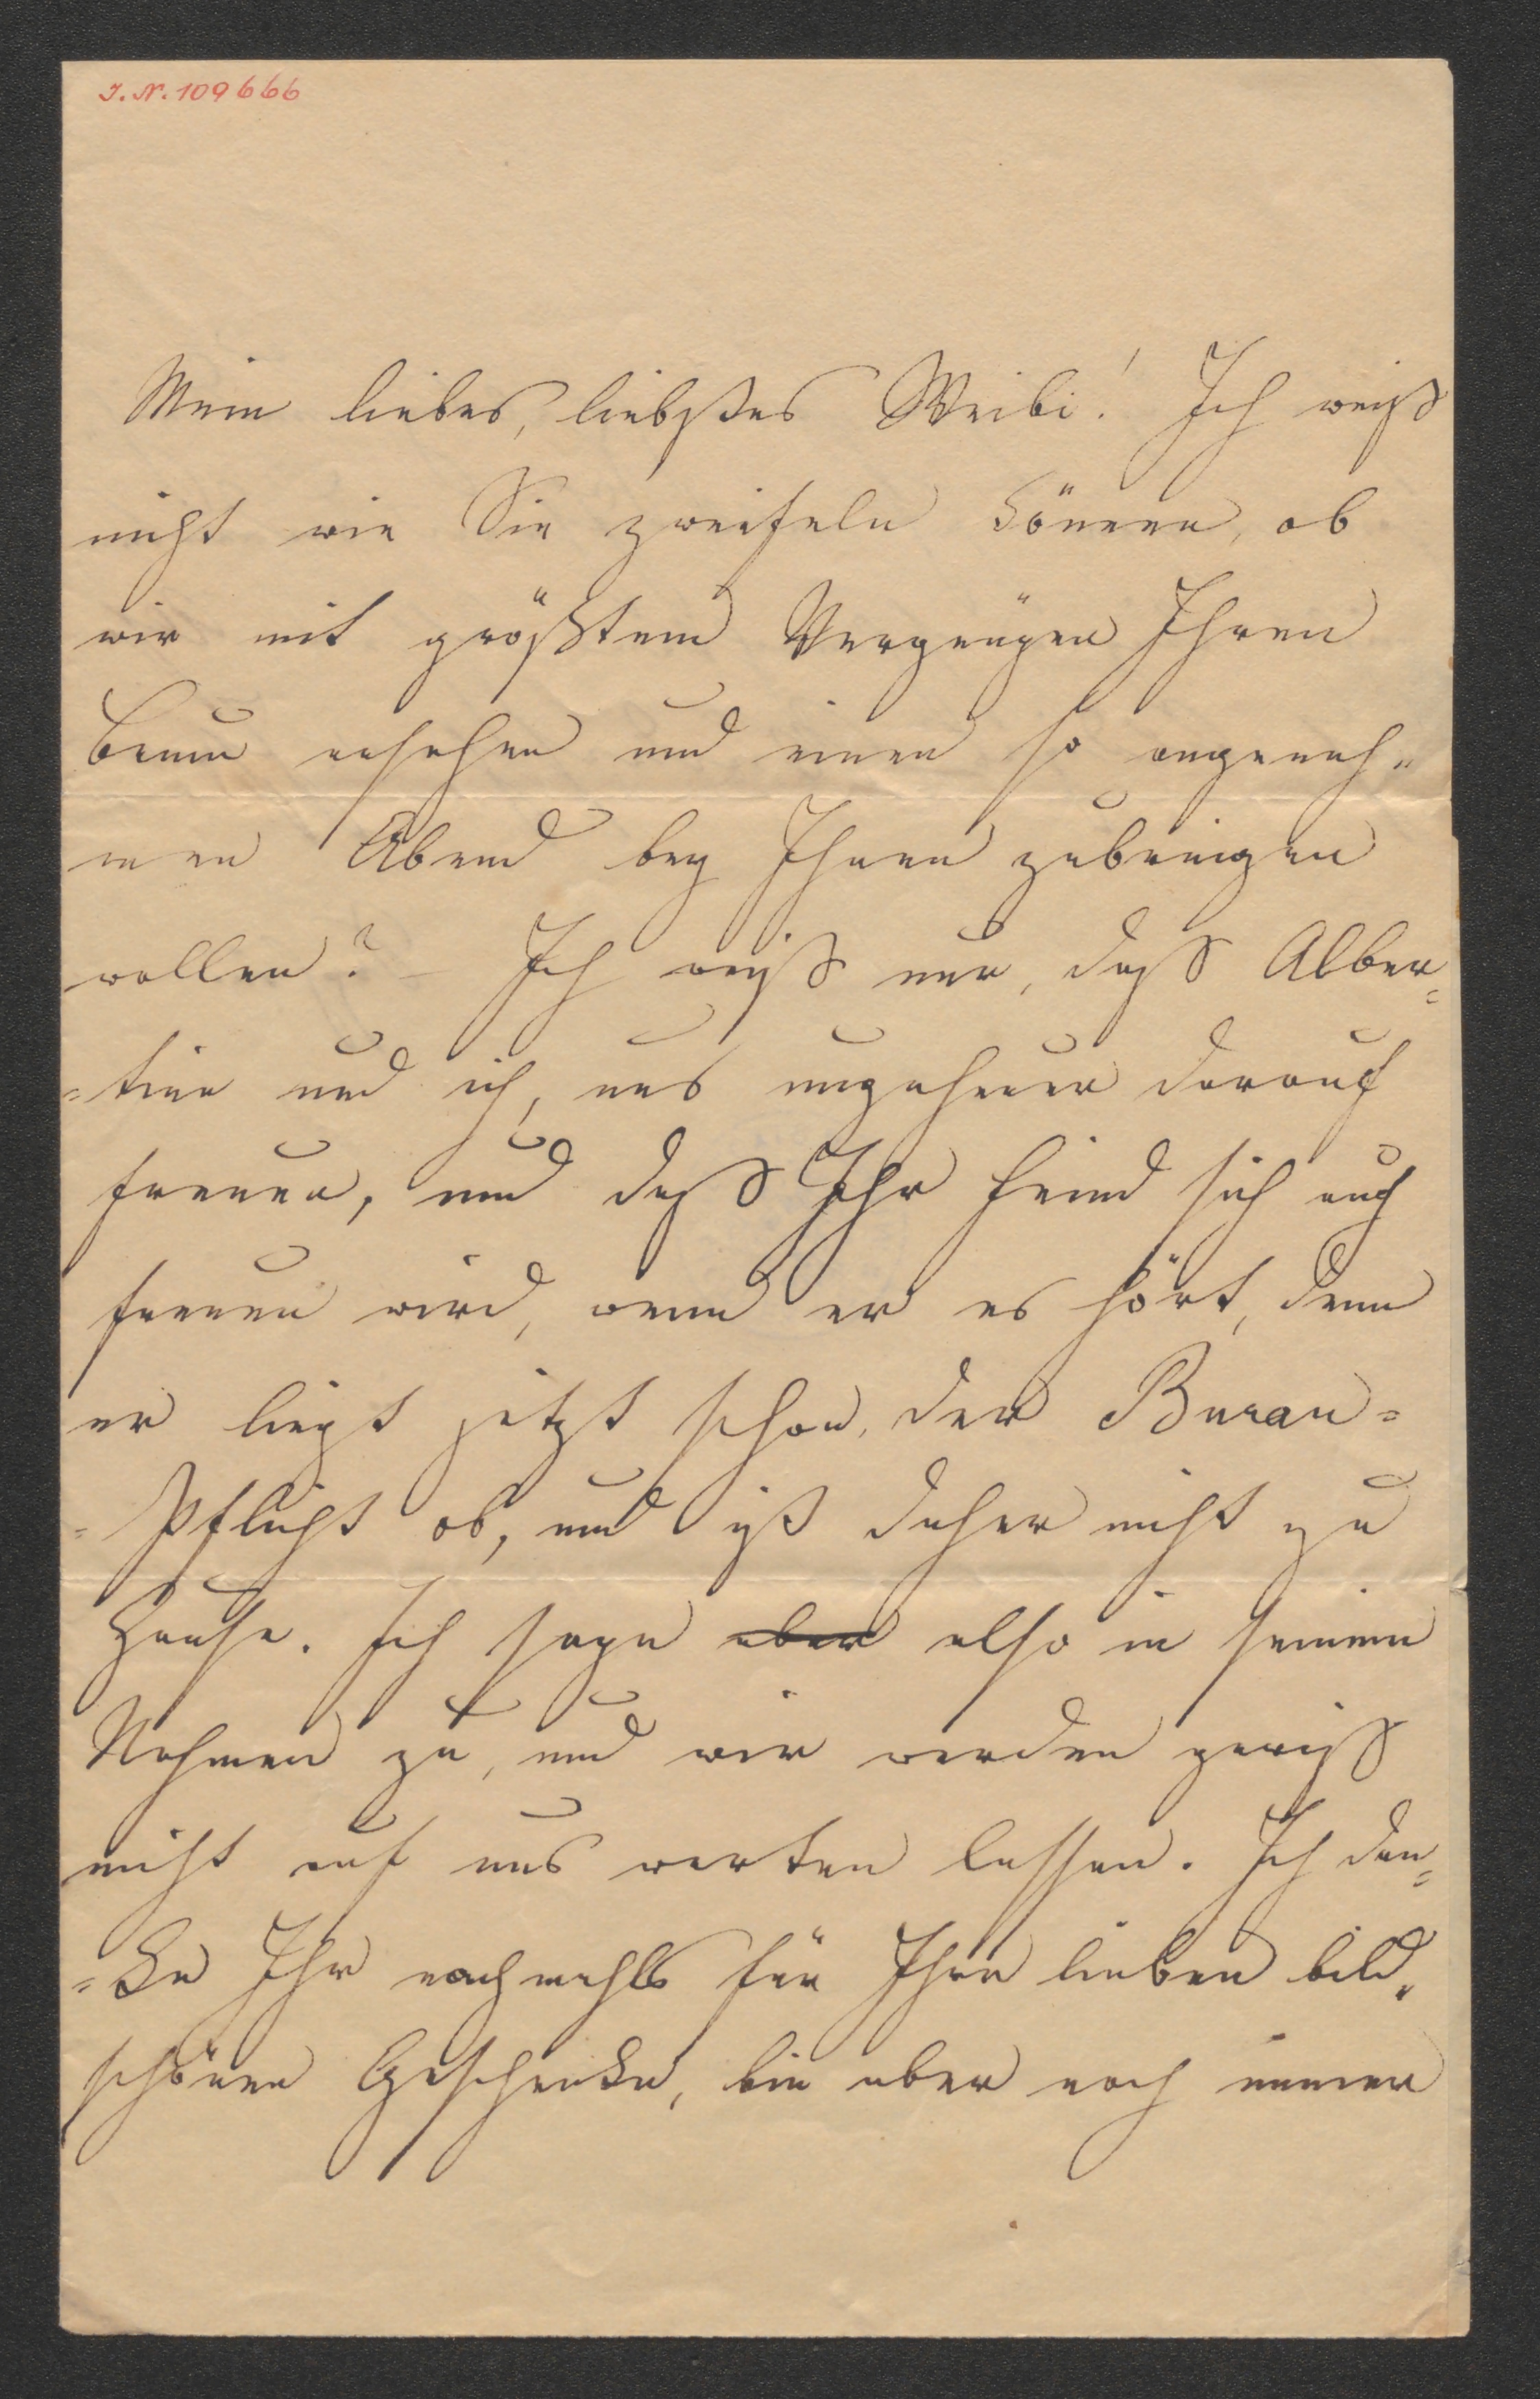 J.N. 109666
Mein liebes, liebstes Weibi! Ich weiß
nicht wie Sie zweifeln können, ob
wir mit größtem Vergnügen Ihren
Baum ansehen und einen so angeneh-
men Abend bey Ihnen zubringen
wollen? – Ich weiß nur, daß Alber=
=tine und ich, uns ungeheuer darauf
freuen, und daß Ihr Feind sich auch
freuen wird, wenn er es hört, denn
er liegt jetzt schon, der Buran=
=Pflicht ob, und ist daher nicht zu
Hause. Ich sage aber also in seinem
Nahmen zu, und wir werden gewiß
nicht auf uns warten lassen. Ich dan=
=ke Ihr nochmahls für Ihre lieben bild-
schönen Geschenke, bin aber noch immer